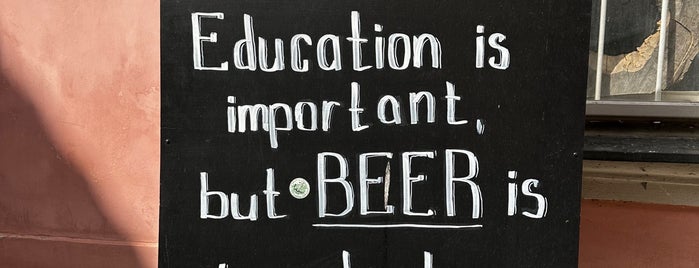 Education is
important,
but BEER is